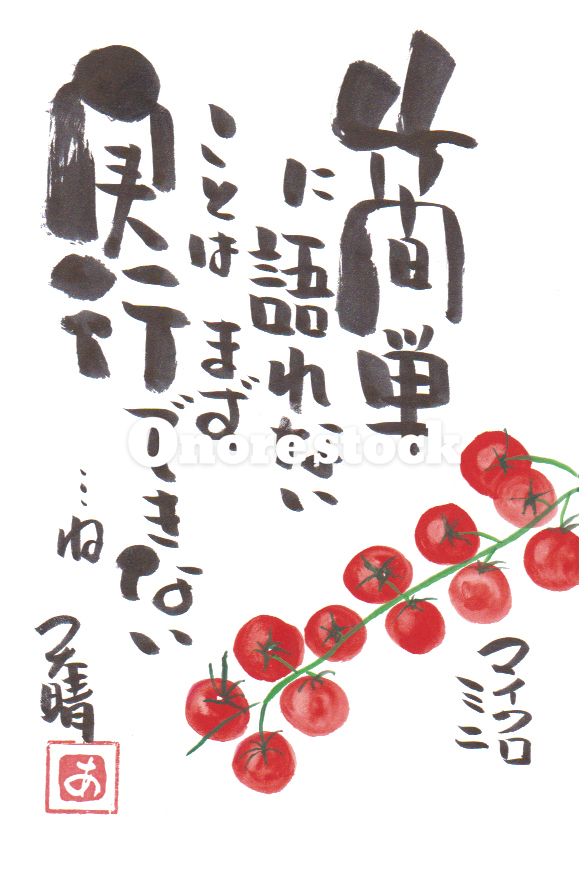 簡単
に語れない
ことはまず
実行できない
…ね
天晴
あ
マイクロ
ミニ
Onorestock